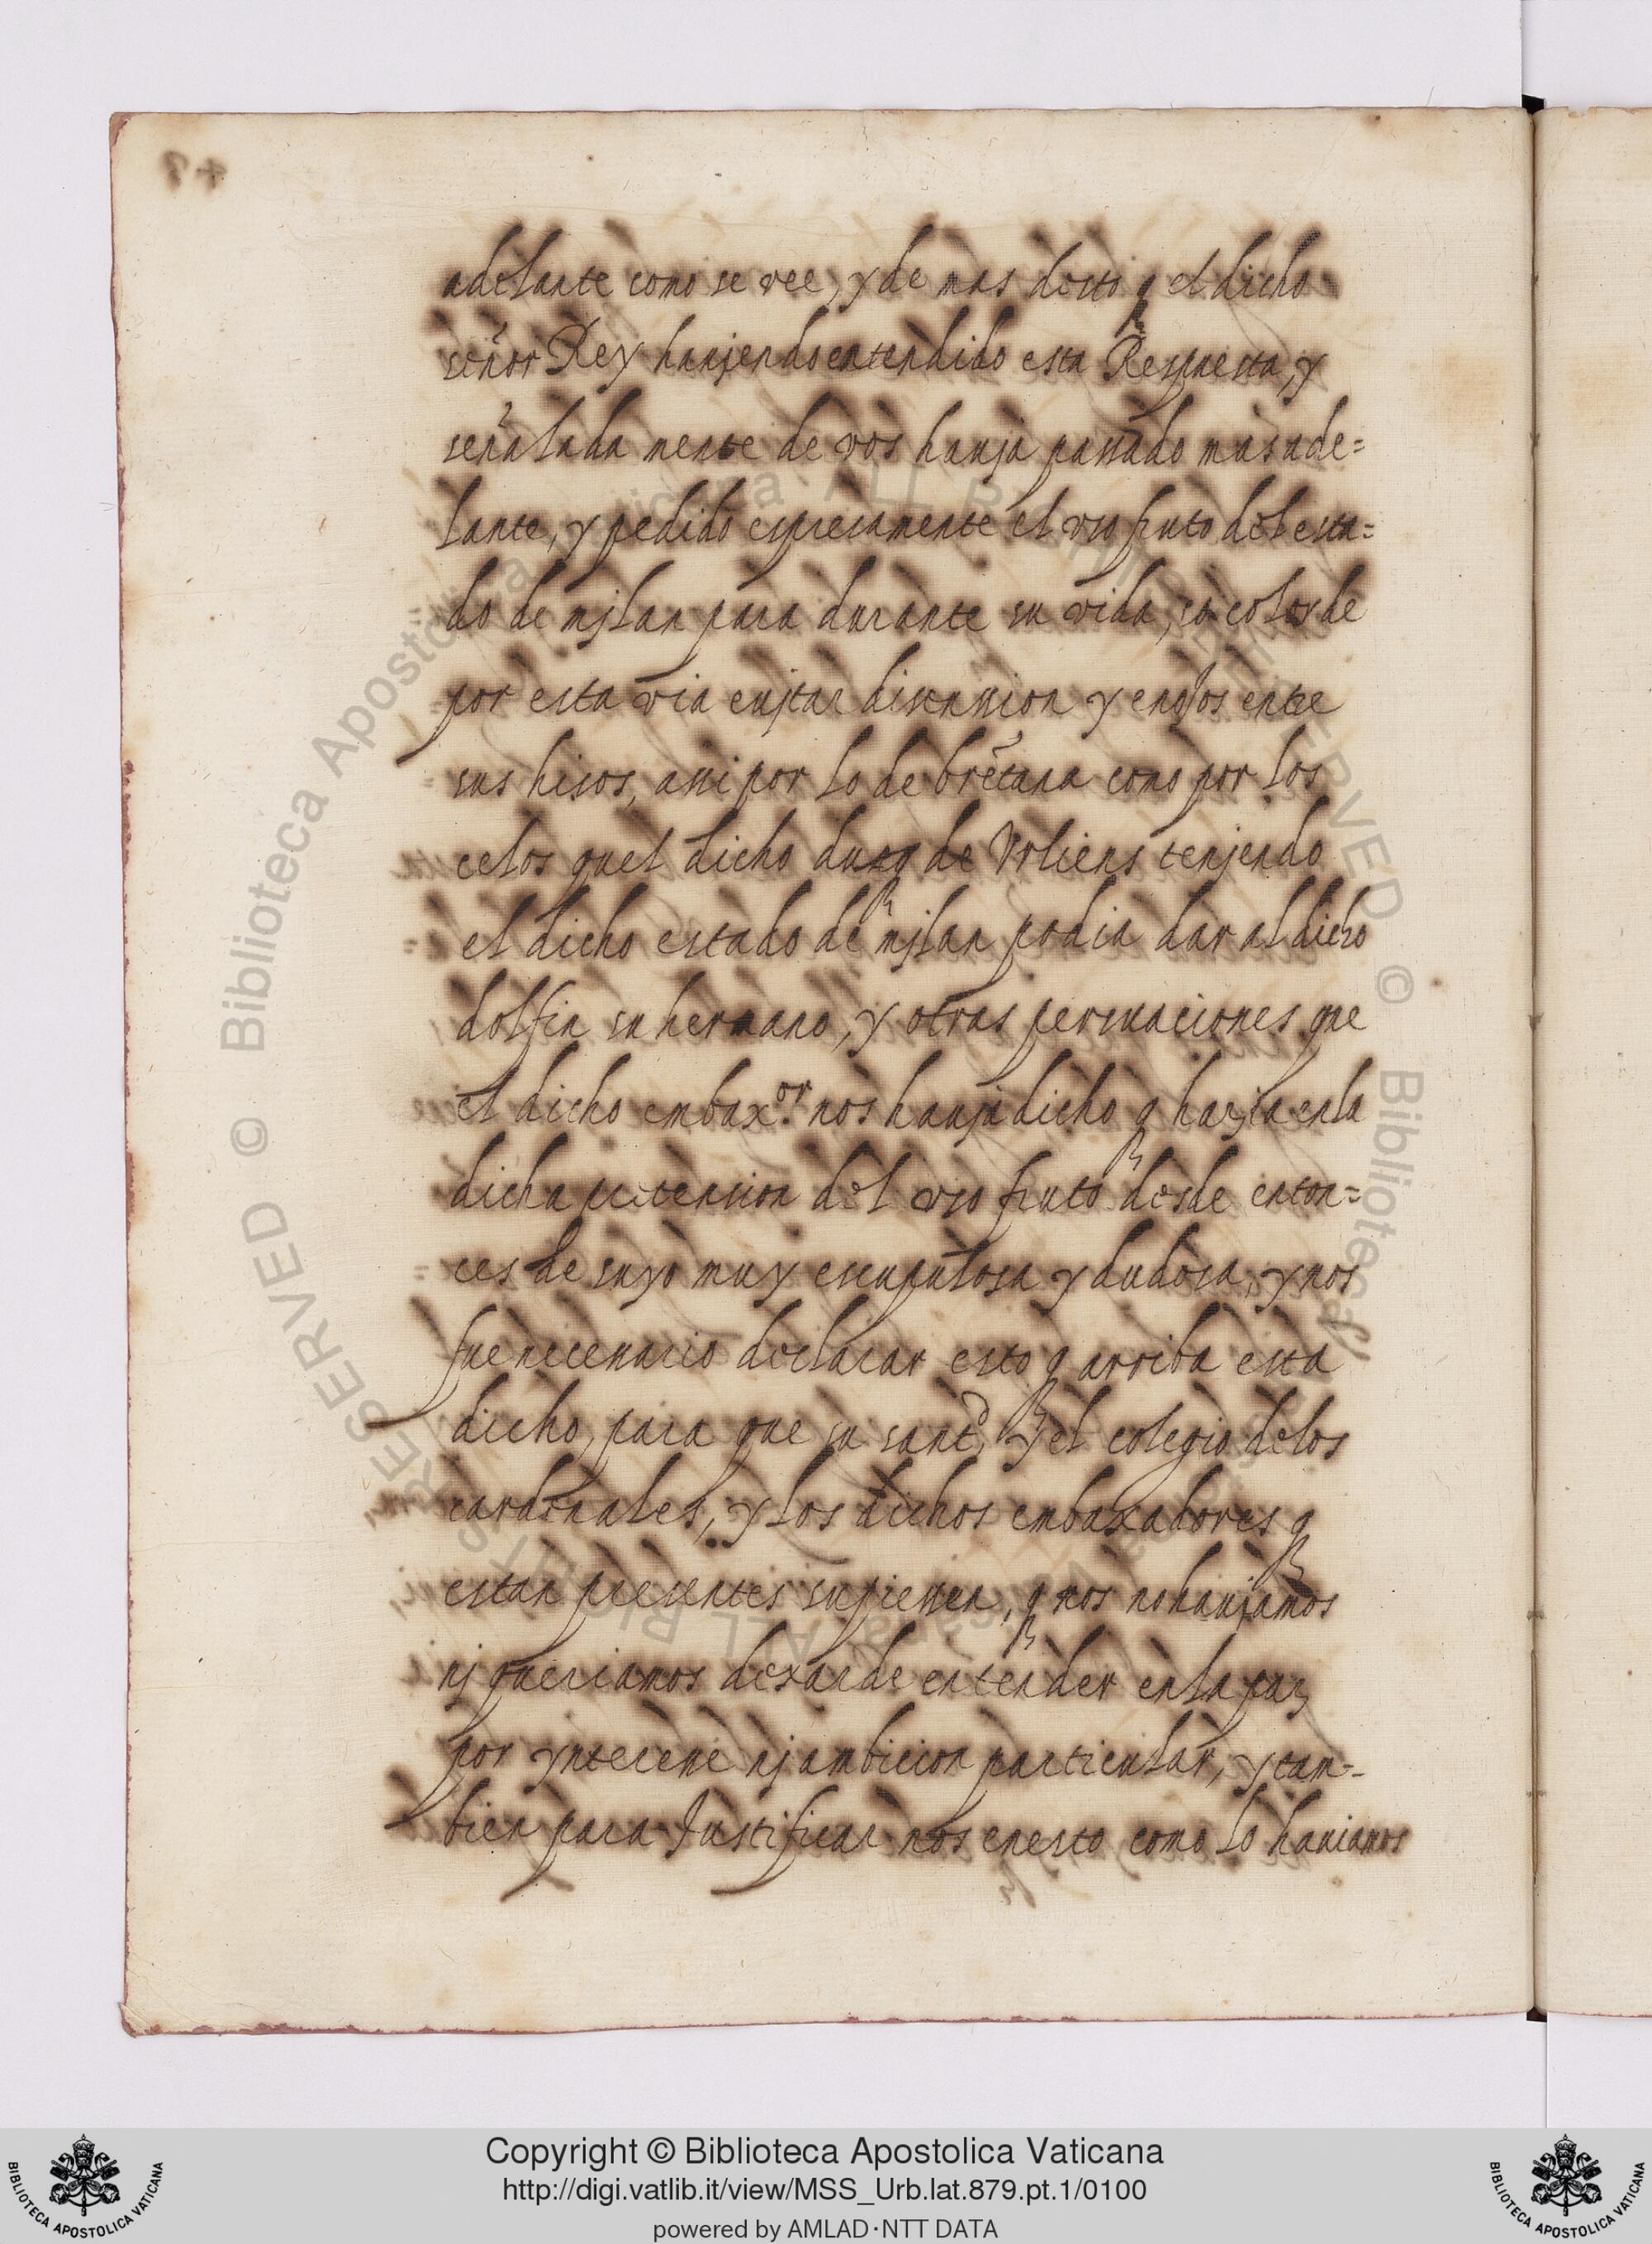 adelante como se vee, y de mas desto q el dicho
señor Rey haujendo entendido esta Respuesta, y
señaladamente de vos hauja passado mas ade=
lante, y pedido espresamente el vso fruto del esta=
do de mjlan para durante su vida, so color de
por esta via eujtar dissension y enojos entre
sus hijos, assi por lo de bretaña como por los
celos quel dicho duq de Vrliens tenjendo
el dicho estado de mjlan podia dar al dicho
dolfin su hermano, y otras persuaciones que
el dicho embax.or nos hauja dicho q hazia en la
dicha pretension del vso fruto desde enton=
ces de suyo muy escrupulosa y dudosa, y nos
fue necessario declarar esto q arriba esta
dicho, para que su santd, y el colegio de los
cardenales, y los dichos embaxadores q
estan presentes supiessen, q nos no haujamos
nj queriamos dexar de entender en la paz
por ynteresse nj ambicion particular, y tam-
bien para Justificar nos en esto como lo hauiamos
Copyright © Biblioteca Apostolica Vaticana
http://digi.vatlib.it/view/MSS_Urb.lat.879.pt.1/0100
powered by AMLAD·NTT DATA
BIBLIOTECA APOSTOLICA VATICANA
BIBLIOTECA APOSTOLICA VATICANA